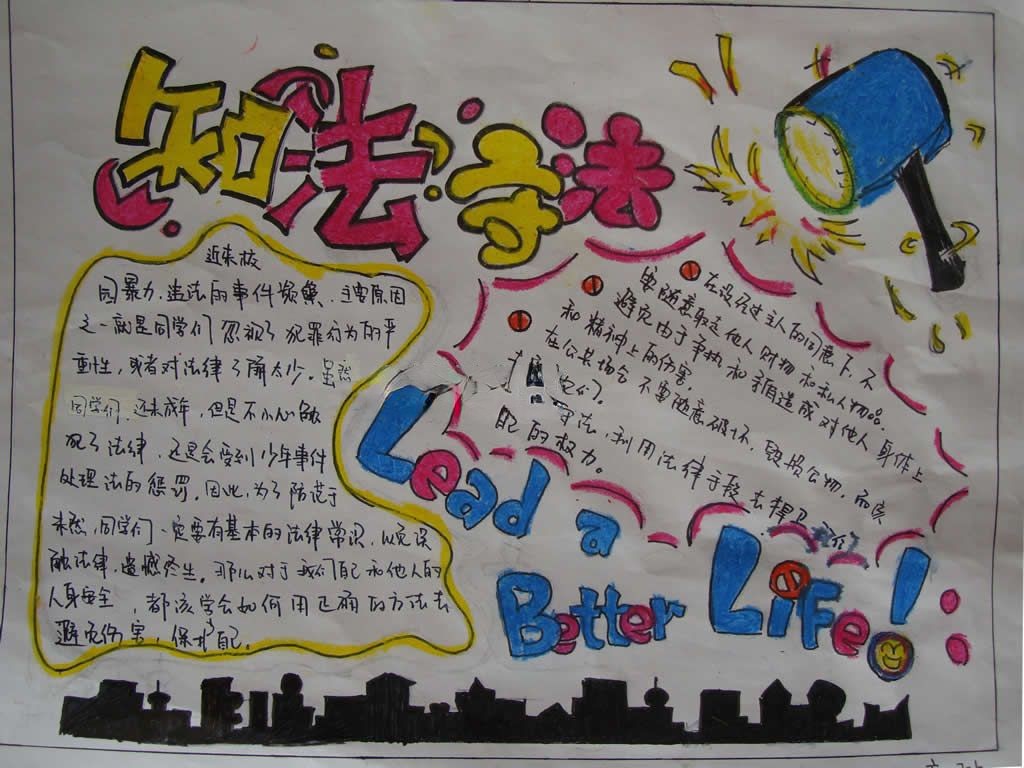 知法守法
近来校
园暴力、违法的事件频繁、主要原因
之一就是同学们忽视了犯罪行为的严
重性，或者对法律了解太少。虽然
同学们还未成年，但是不小心触
犯了法律，还是会受到少年事件
处理法的惩罚。因此，为了防范于
未然，同学们一定要有基本的法律常识，以免误
触法律，遗憾终生。那么对于我们自己和他人的
人身安全，都该学会如何用正确的方法去
避免伤害，保护自己。
在没经过主人的同意下，不
要随意取走他人财物和私人物品。
避免由于争执和矛盾造成对他人身体上
和精神上的伤害。
在公共场合不要随意破坏，毁损公物，而应
它们。
守法，利用法律手段去捍卫
自己的权力。
Lead a
Better Life!